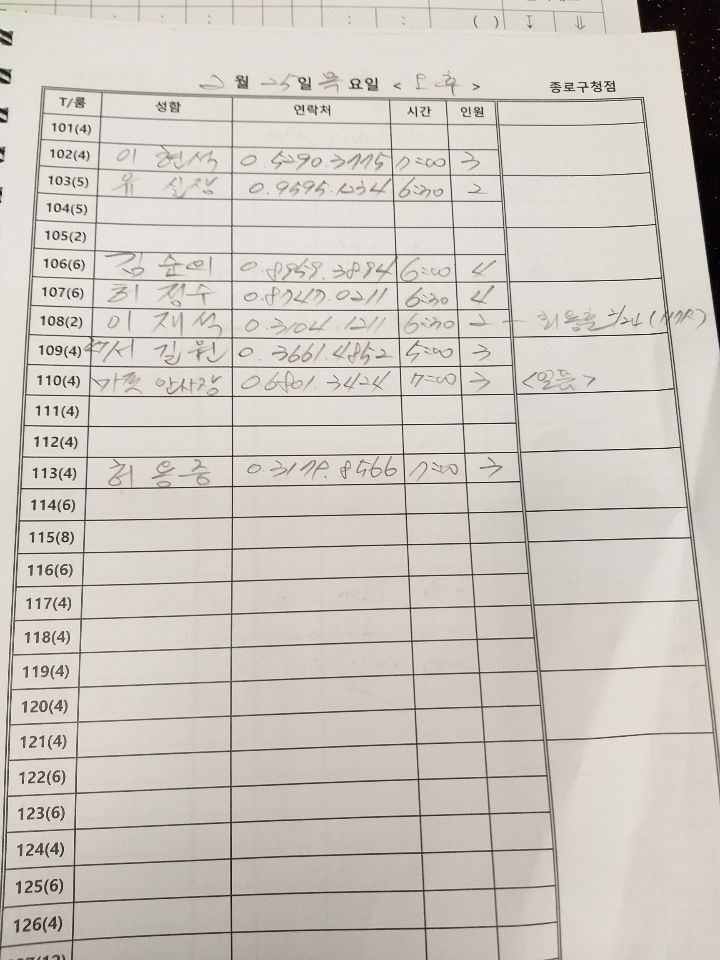 ( ) ↧ ⇓
2월 25일 목요일 < 오후 > 종로구청점
T/룸 성함 연락처 시간 인원
101(4)
102(4) 이 현석 0.5290.3775 7:00 3
103(5) 유 실장 0.9595.1234 6:30 2
104(5)
105(2)
106(6) 김 순이 0.8959.3894 6:00 4
107(6) 허 정수 0.8747.0211 6:30 4
108(2) 이 재석 0.3104.1211 6:30 2
109(4) 서 길원 0.3661.4852 5:00 3
110(4) 안사장 0.6801.3424 7:00 3 <일품>
111(4)
112(4)
113(4) 허 용중 0.3179.8566 7:00 3
114(6)
115(8)
116(6)
117(4)
118(4)
119(4)
120(4)
121(4)
122(6)
123(6)
124(4)
125(6)
126(4)